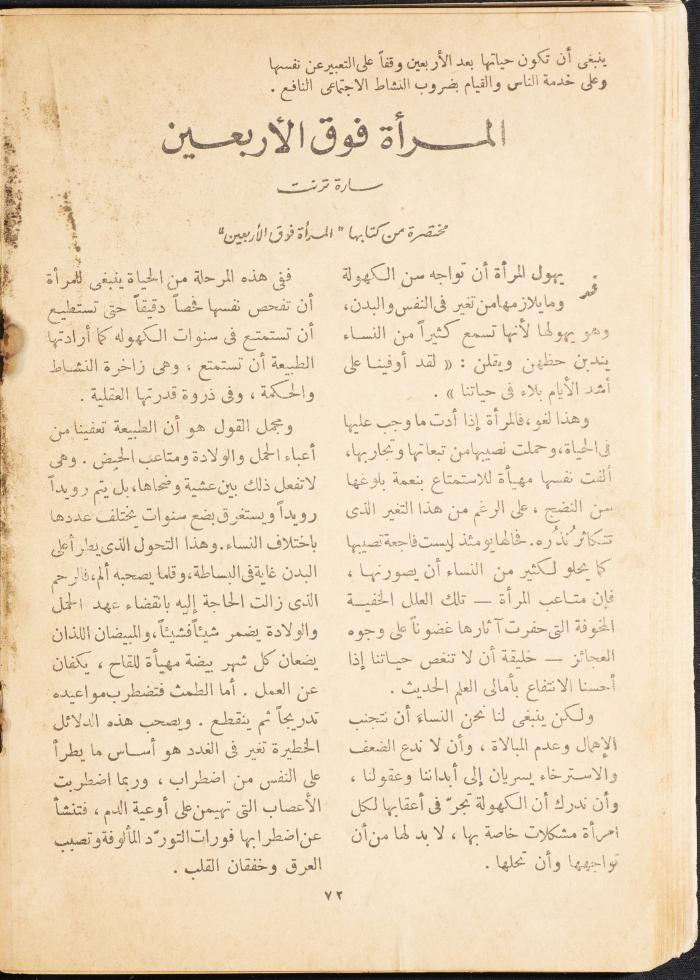 ينبغى أن تكون حياتها بعد الأربعين وقفاً على التعبير عن نفسها
وعلى خدمة الناس والقيام بضروب النشاط الاجتماعى النافع .
المرأة فوق الأربعين
سارة ترنت
مختصرة من كتابها "المرأة فوق الأربعين"
يهول المرأة أن تواجه سن الكهولة
وما يلازمها من تغير فى النفس والبدن،
وهو يهولها لأنها تسمع كثيراً من النساء
يندبن حظهن ويقلن : « لقد أوفينا على
أشد الأيام بلاء فى حياتنا » .
وهذا لغو، فالمرأة إذا أدت ما وجب عليها
فى الحياة، وحملت نصيبها من تبعاتها وتجاربها،
ألفت نفسها مهيأة للاستمتاع بنعمة بلوغها
سن النضج ، على الرغم من هذا التغير الذى
تتكاثر نُذُره. فحالها يومئذ ليست فاجعة تصيبها
كما يحلو لكثير من النساء أن يصورنها ،
فإن متاعب المرأة — تلك العلل الخفية
المخوفة التى حفرت آثارها غضوناً على وجوه
العجائز — خليقة أن لا تنغص حياتنا إذا
أحسنا الانتفاع بأمالى العلم الحديث .
ولكن ينبغى لنا نحن النساء أن نتجنب
الإهمال وعدم المبالاة ، وأن لا ندع الضعف
والاسترخاء يسريان إلى أبداننا وعقولنا ،
وأن ندرك أن الكهولة تجرّ فى أعقابها لكل
امرأة مشكلات خاصة بها ، لا بد لها من أن
تواجهها وأن تحلها .
ففى هذه المرحلة من الحياة ينبغى للمرأة
أن تفحص نفسها فحصاً دقيقاً حتى تستطيع
أن تستمتع فى سنوات الكهوله كما أرادتها
الطبيعة أن تستمتع ، وهى زاخرة النشاط
والحكمة ، وفى ذروة قدرتها العقلية .
ومجمل القول هو أن الطبيعة تعفينا من
أعباء الحمل والولادة ومتاعب الحيض . وهى
لا تفعل ذلك بين عشية وضحاها، بل يتم رويداً
رويداً ويستغرق بضع سنوات يختلف عددها
باختلاف النساء. وهذا التحول الذى يطرأ على
البدن غاية فى البساطة، وقلما يصحبه ألم، فالرحم
الذى زالت الحاجة إليه بانقضاء عهد الحمل
والولادة يضمر شيئاً فشيئاً، والمبيضان اللذان
يضعان كل شهر بيضة مهيأة للقاح ، يكفان
عن العمل . أما الطمث فتضطرب مواعيده
تدريجاً ثم ينقطع . ويصحب هذه الدلائل
الخطيرة تغير فى الغدد هو أساس ما يطرأ
على النفس من اضطراب ، وربما اضطربت
الأعصاب التى تهيمن على أوعية الدم ، فتنشأ
عن اضطرابها فورات التورّد المألوفة وتصبب
العرق وخفقان القلب .
٧٢